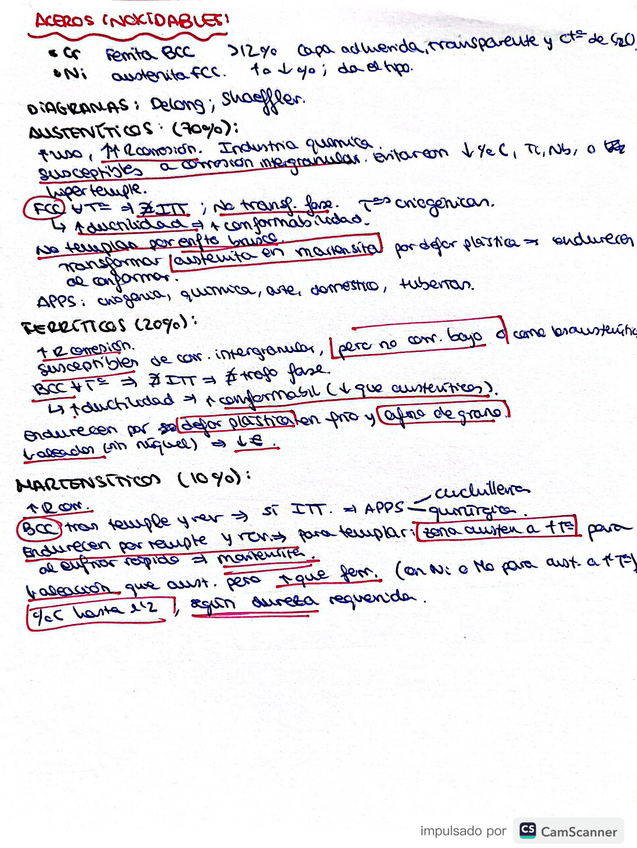 ACEROS INOXIDABLES:
• Cr ferrita BCC >12% capa adherida, transparente y cte de Cr2O
• Ni austenita FCC. ↑o↓%; da el tipo.
DIAGRAMAS: Delong; Shaeffler.
AUSTENÍTICOS: (70%):
↑uso, ↑↑Rcorrosión. Industria química.
susceptibles a corrosión intergranular. Evitar con ↓%C, Ti, Nb, o
hipertemple.
FCC ∀Tª ⇒ ∄ITT; No transf. fase. Tªs criogénicas.
↳ ↑ductilidad ⇒ ↑conformabilidad.
No templan por enfto brusco.
Transformar austenita en martensita por defor plástica ⇒ endurecen
al conformar.
APPS: criogenia, química, ane, doméstico, tuberías.
FERRÍTICOS (20%):
↑Rcorrosión.
Susceptibles de corr. intergranular, pero no corr. bajo σ como los austenític
BCC ∀Tª ⇒ ∄ITT ⇒ ∄trafo fase.
↳ ↑ductilidad ⇒ ↑conformabil (↓ que austeníticos).
Endurecen por defor plástica en frío y afino de grano
↓aleados (sin níquel) ⇒ ↓€.
MARTENSÍTICOS (10%):
↑R corr.
BCC tras temple y rev ⇒ sí ITT. ⇒ APPS cuchillería
quirúrgica.
Endurecen por temple y rev. ⇒ para templar: zona austen a ↑Tª para
al enfriar rápido ⇒ martensita.
↓aleación que aust. pero ↑que ferr. (con Ni o Mo para aust. a ↑Tª)
%C hasta 1'2, según dureza requerida.
impulsado por CS CamScanner